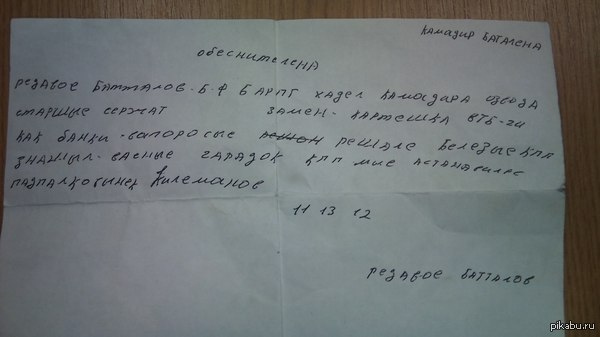 камадир БАТАЛЕНА
обеснителенА
резавое Батталов-Б-Ф БАРПГ хадел камадира взвода
старшые сержат замен-картешка ВТБ-24
как банки-вапоросые решале Белезые КПП
знанмыл-васные гарадок кпп мие астанавилес
падпалковынек Килеманов
11 13 12
резавое Батталов
pikabu.ru